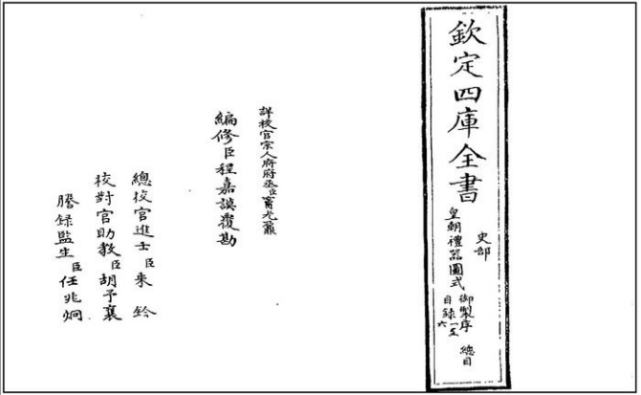 欽定四庫全書
史部
皇朝禮器圖式
御製序 總目
目錄一至
六
詳校官宗人府丞臣竇光鼐
編修臣程嘉謨覆勘
總校官進士臣朱鈐
校對官助教臣胡予襄
謄錄監生臣任兆炯